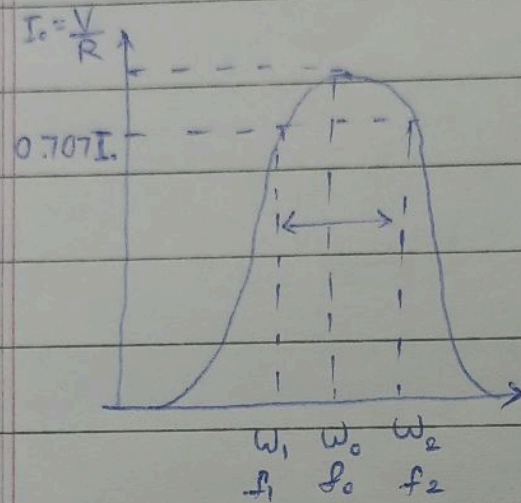 I₀ = V/R
0.707I₀
ω₁ ω₀ ω₂
f₁ f₀ f₂